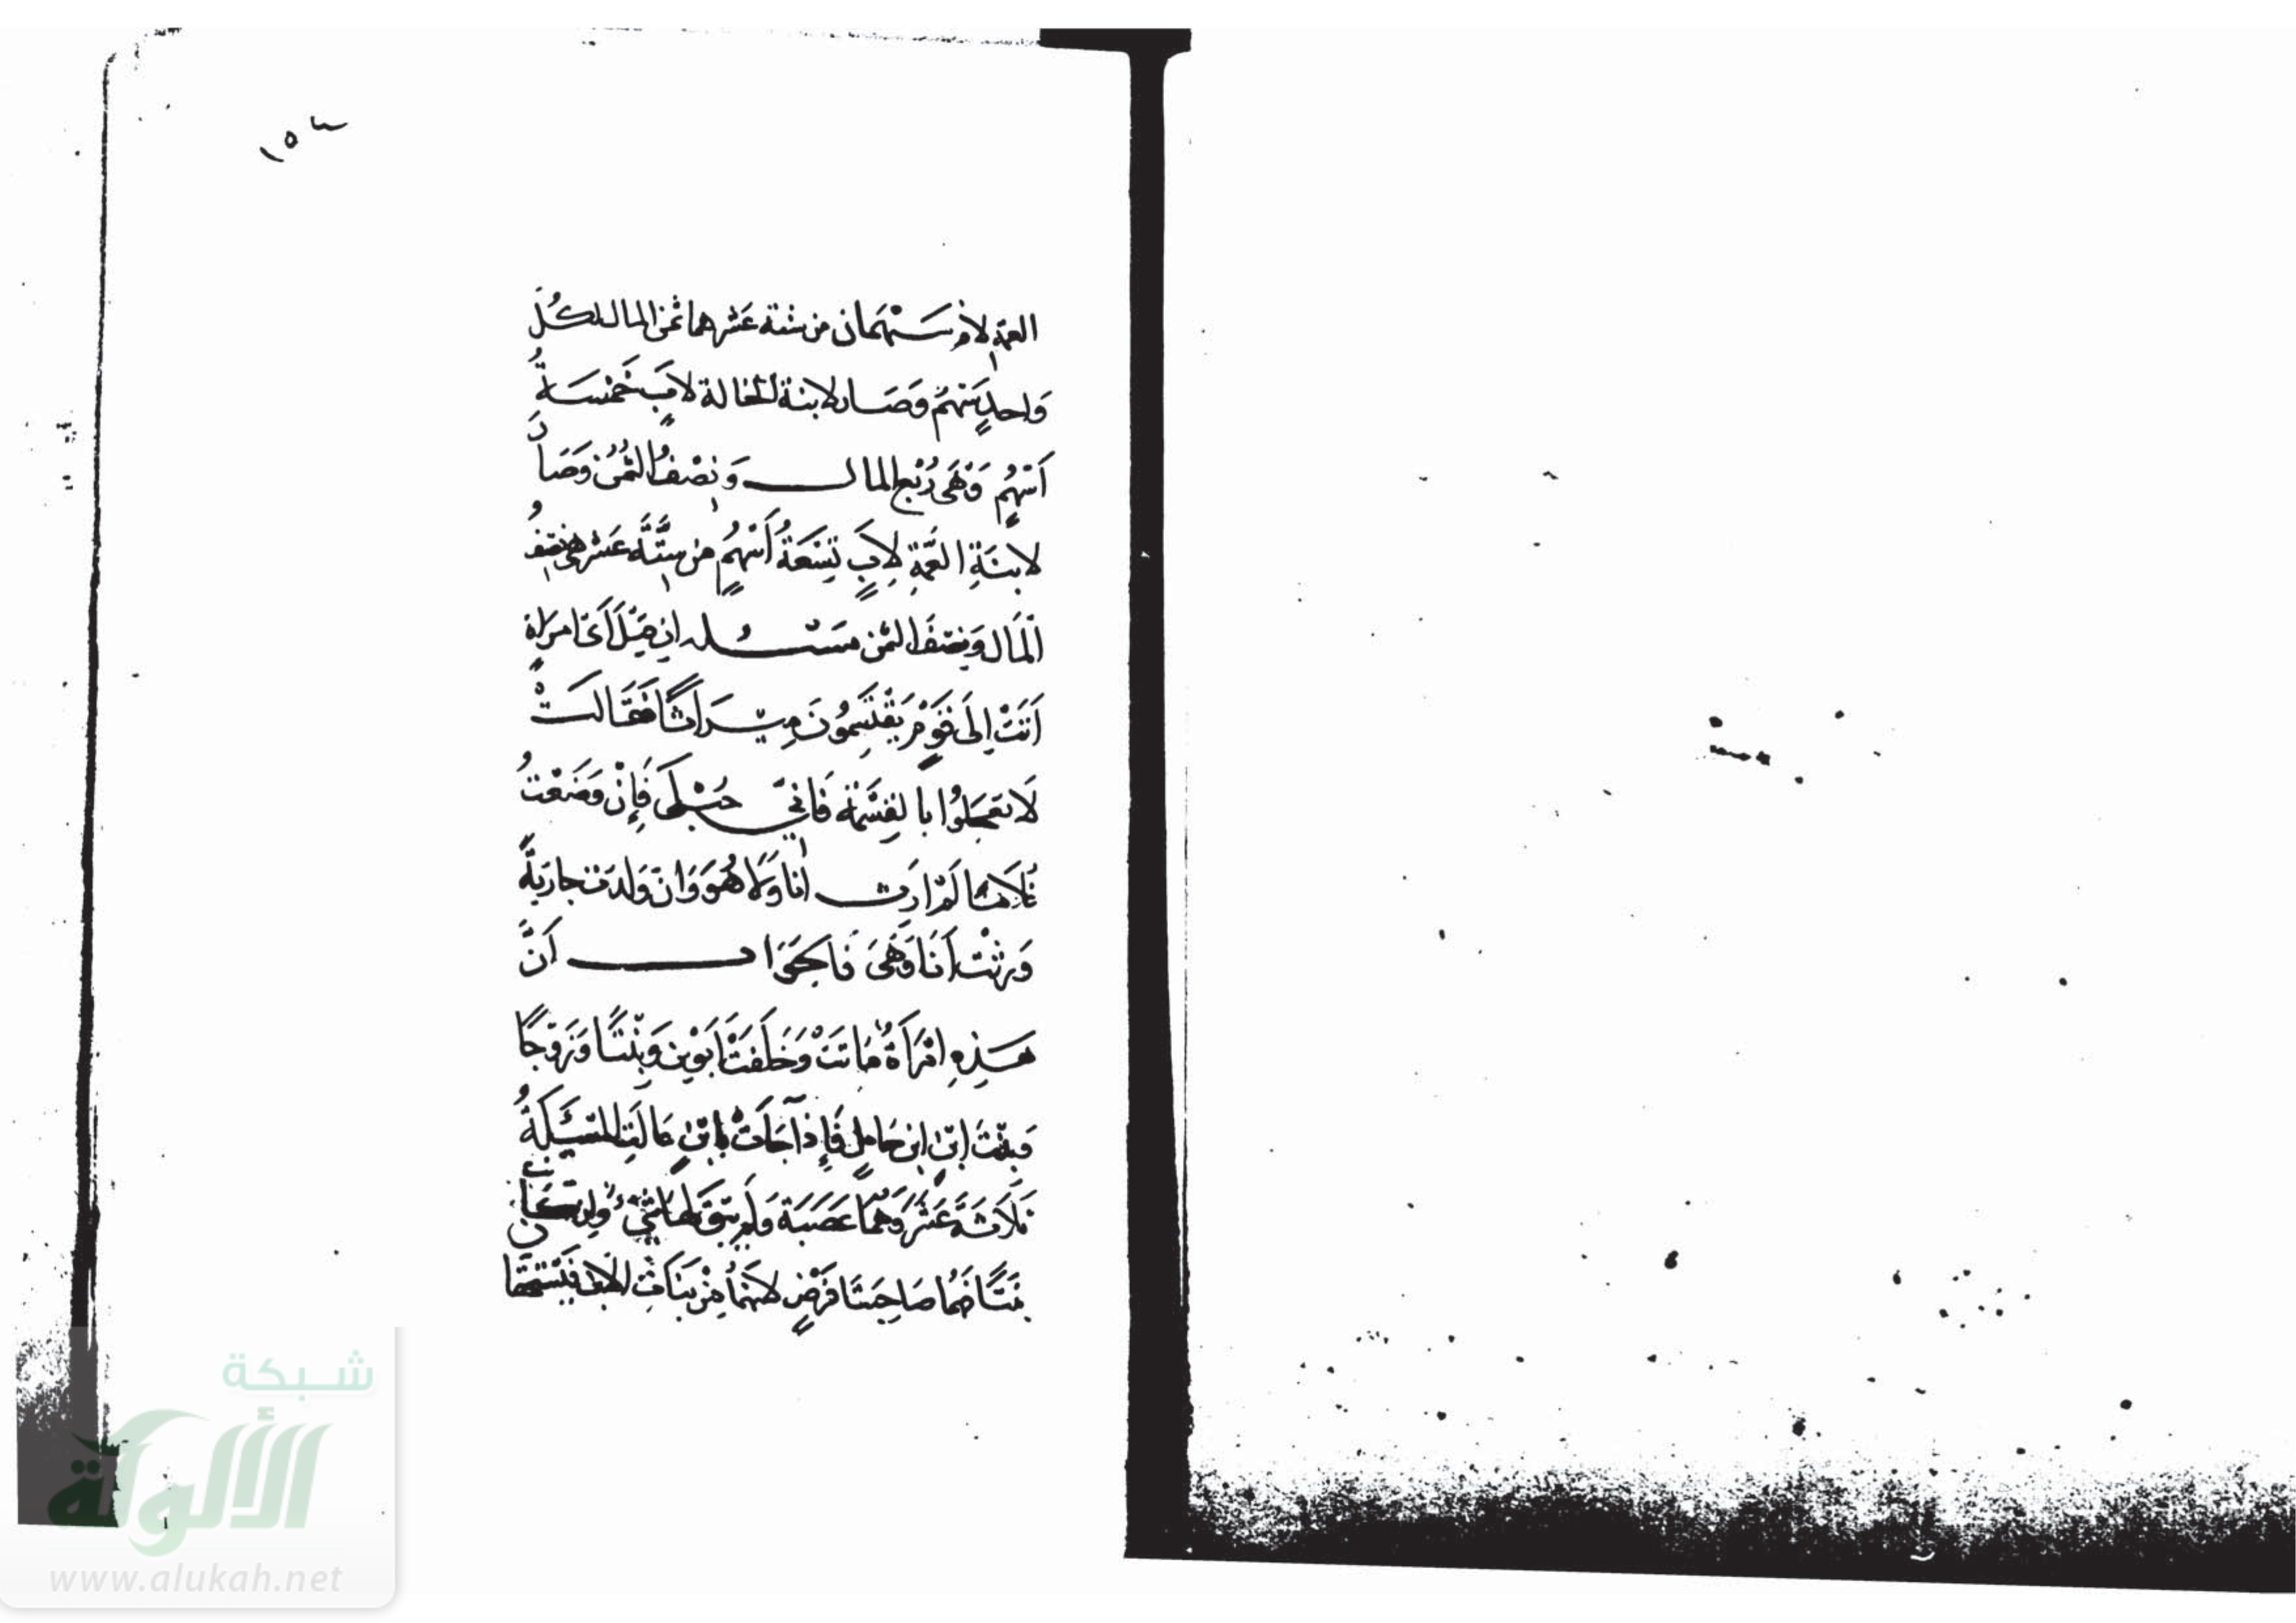 ١٥٣
العمة لام سَهْمان من ستة عشر هما ثمن المال لكُل
وَاحدٍ سَهْم وَصَار لابنة الخالة لابٍ خَمْسَةُ
أَسْهُمٍ وَهَى رُبْع المال وَنِصْفُ الثُمُن وَصَارَ
لابنَةِ العَمَّةِ لِابٍ تِسْعَةُ أَسْهُمٍ من سِتَّةَ عَشر هى نِصْفُ
الْمَال وَنِصْفَ الثمن مسئله ان قيْلَ اَىّ امرَاةٍ
اَتَتْ اِلَى قَوْمٍ يَقْتَسِمُونَ مِيْرَاثًا فَقَالَتْ
لَا تَعجَلُوا بالقِسْمَة فَانىّ حُبْلَى فَإِنْ وَضَعْتُ
غُلَامًا لَمْ ارَث اَنا وَلَا هُوَ وَانْ وَلَدت جاريَةً
وَرثْت اَنَا وَهَىَ فَالجَوَاب اَنَّ
هَذِهِ امْرَأَةٌ مَاتَتْ وَخَلَفَتْ اَبَوْين وَبِنْتًا وَزَوْجًا
وَبنْتَ ابْنٍ ابن حَامِلٍ فَإِذَا جَآتْ بِابْنٍ عَالَتِ المَسْئَلَةُ
ثَلَاثَةَ عَشَرَ وَهُمَا عَصَبَة وَلَم يَبْقَ لهَمَا شَىْءٌ وَان كَانَت
بنْتًا فَهُما صَاحِبَتَا فَرْضٍ لانهمَا مِنْ بَنَاتِ الابن فَيَسْتَحقَّا
شبكة
الألوكة
www.alukah.net